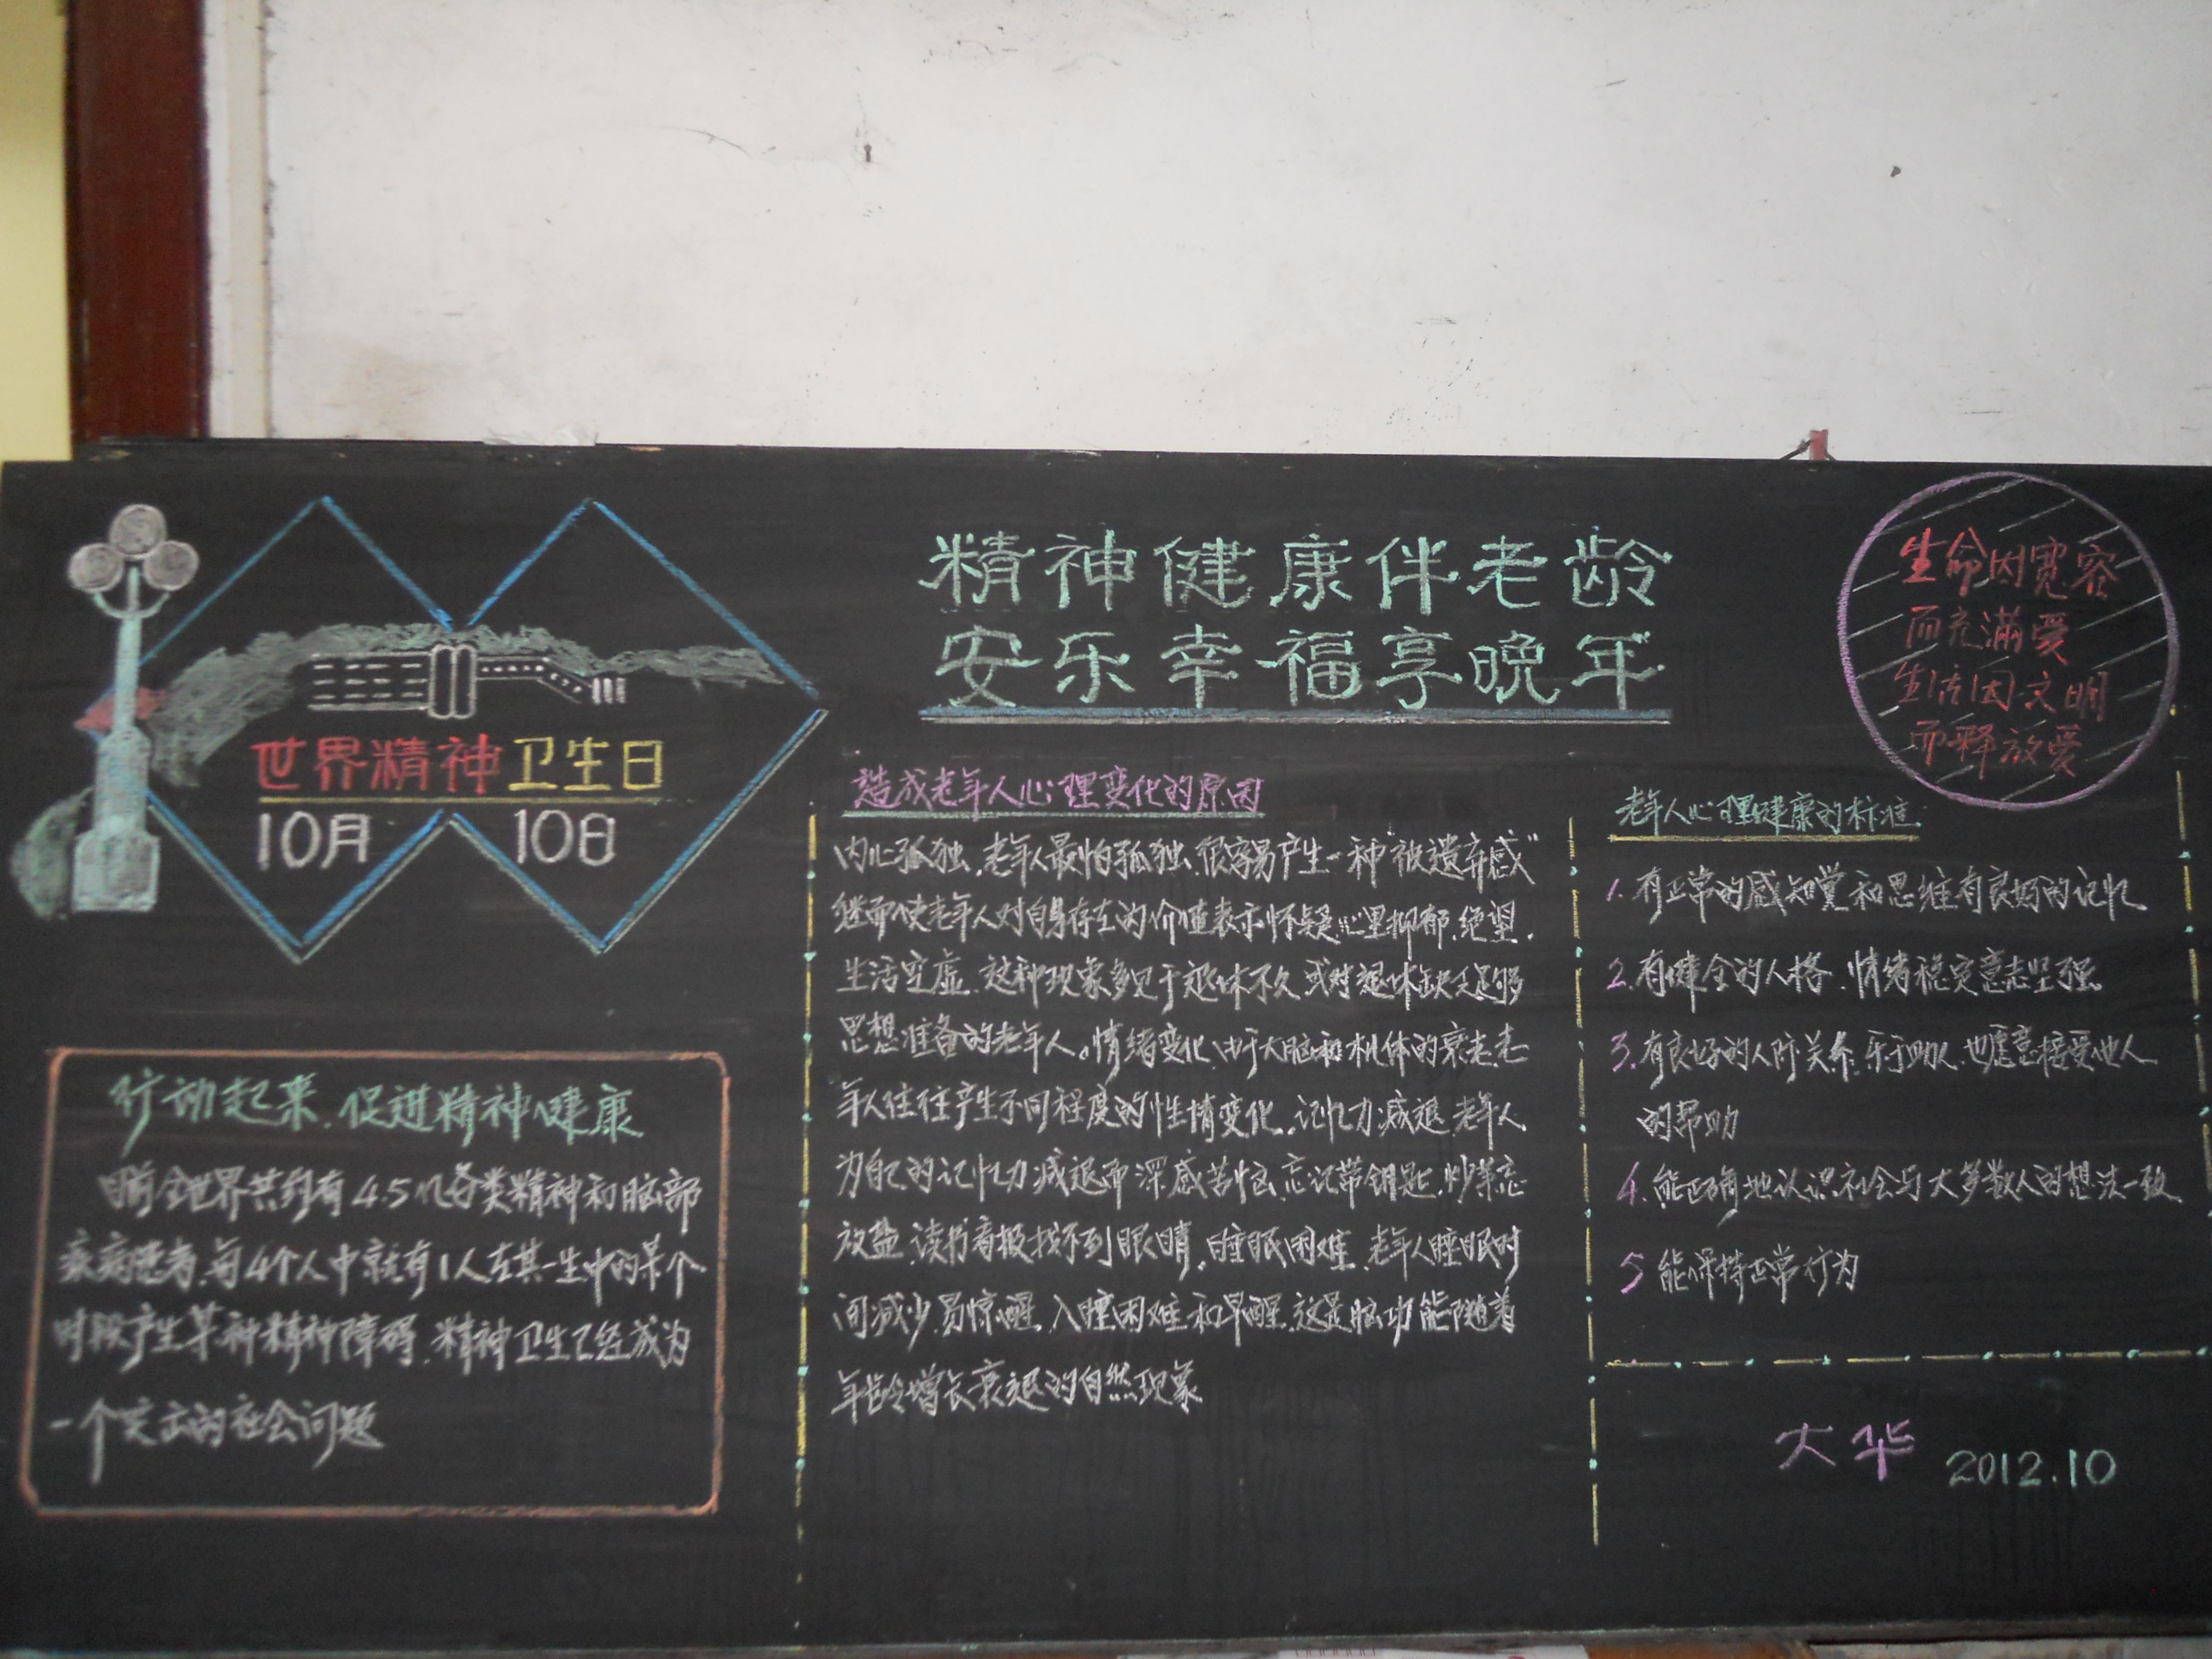 世界精神卫生日
10月 10日
行动起来.促进精神健康
目前全世界共约有4.5亿各类精神和脑部
疾病患者.每4个人中就有1人在其一生中的某个
时段产生某种精神障碍.精神卫生已经成为
一个突出的社会问题
精神健康伴老龄
安乐幸福享晚年
造成老年人心理变化的原因
内心孤独.老年人最怕孤独.很容易产生一种"被遗弃感"
继而使老年人对自身存在的价值表示怀疑.心里抑郁.绝望.
生活空虚.这种现象多见于退休不久或对退休缺乏足够
思想准备的老年人。情绪变化.由于大脑和机体的衰老老
年人往往产生不同程度的性情变化.记忆力减退.老年人
为自己的记忆力减退而深感苦恼.忘记带钥匙.炒菜忘
放盐.读书看报找不到眼睛.睡眠困难.老年人睡眠时
间减少.易惊醒.入睡困难和早醒.这是脑功能随着
年龄增长衰退的自然现象
生命因宽容
而充满爱
生活因文明
而释放爱
老年人心理健康的标准
1.有正常的感知觉和思维有良好的记忆
2.有健全的人格.情绪稳定意志坚强
3.有良好的人际关系.乐于助人.也愿意接受他人
的帮助
4.能正确地认识社会与大多数人的想法一致
5 能保持正常行为
大华 2012.10